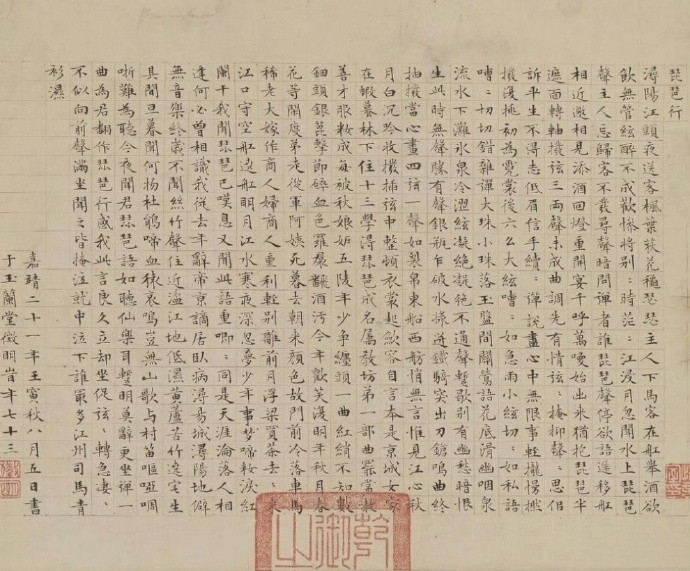 琵琶行
潯陽江頭夜送客楓葉荻花穐瑟瑟主人下馬客在舩舉酒欲
飲無管絃醉不成歡慘將別:時茫:江浸月忽聞水上琵琶
聲主人忘歸客不發尋聲暗問彈者誰琵琶聲停欲語遲移舩
相近邀相見添酒回燈重開宴千呼萬喚始出來猶抱琵琶半
遮面轉軸撥弦三兩聲未成曲調先有情弦:掩抑聲:思似
訴平生不得志低眉信手續:彈說盡心中無限事輕攏慢撚
撥復挑初為霓裳後六么大絃嘈:如急雨小絃切:如私語
嘈:切切錯雜彈大珠小珠落玉盤間關鶯語花底滑幽咽泉
流水下灘水泉冷澀絃凝絕凝絕不通聲暫歇別有幽愁暗恨
生此時無聲勝有聲銀瓶乍破水漿迸鐵騎突出刀鎗鳴曲終
抽撥當心畫四弦一聲如裂帛東船西舫悄無言惟見江心秋
月白沉吟收撥插弦中整頓衣裳起歛容自言本是京城女家
在蝦蟇林下住十三學得琵琶成名屬教坊第一部曲罷常教
善才服妝成每被秋娘妬五陵年少爭纏頭一曲紅綃不知數
鈿頭銀篦擊節碎血色羅裙飜酒汚今年歡笑復明年秋月春
花等閒度弟走從軍阿姨死暮去朝來顏色故門前冷落車馬
稀老大嫁作商人婦商人重利輕別離前月浮梁買茶去:來
江口守空舩遶舩明月江水寒夜深忽夢少年事夢啼粧淚紅
闌干我聞琵琶已嘆息又聞此語重唧:同是天涯淪落人相
逢何必曾相識我從去年辭帝京謫居臥病潯昜城潯陽地僻
無音樂終歲不聞絲竹聲住近湓江地低濕黃蘆苦竹遶宅生
其間旦暮聞何物杜鵑啼血猿哀鳴豈無山歌与村笛嘔啞啁
哳難為聽今夜聞君琵琶語如聽仙樂耳暫明莫辭更坐彈一
曲為君翻作琵琶行感我此言良久立却坐促弦:轉急凄:
不似向前聲滿坐聞之皆掩泣就中泣下誰最多江州司馬青
衫濕
嘉靖二十一年壬寅秋八月五日書
于玉蘭堂徵明旹年七十三